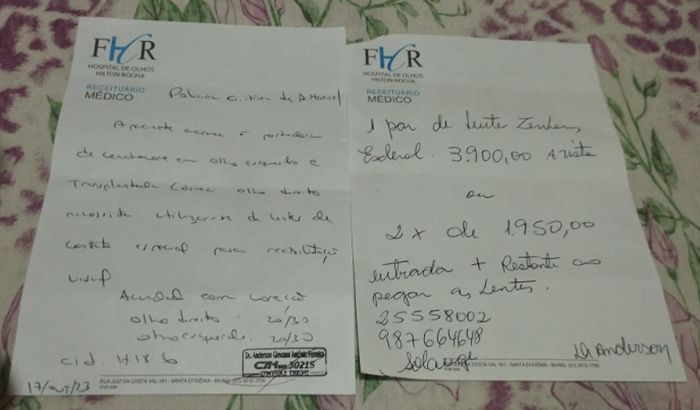 FHR
HOSPITAL DE OLHOS
HILTON ROCHA
RECEITUÁRIO
MÉDICO
A paciente acima é portadora
de ceratocone em olho esquerdo e
Transplantada Córnea olho direito
necessita utilizar-se de lentes de
contato especial para reabilitação
visual
Acuidade com correção
olho direito: 20/30
olho esquerdo: 20/30
cid H18.6
Dr. Anderson Geovani Antônio Ferreira
CRM MG 30215
RUA JUIZ DA COSTA VAL 181 - SANTA EFIGÊNIA - BH/MG
FHR
HOSPITAL DE OLHOS
HILTON ROCHA
RECEITUÁRIO
MÉDICO
1 par de Lente
3.900,00 A vista
ou
2 x de 1.950,00
entrada + Restante ao
pegar as Lentes.
25558002
987664648
Solange
Dr Anderson
COSTA VAL 181 - SANTA EFIGÊNIA - BH/MG